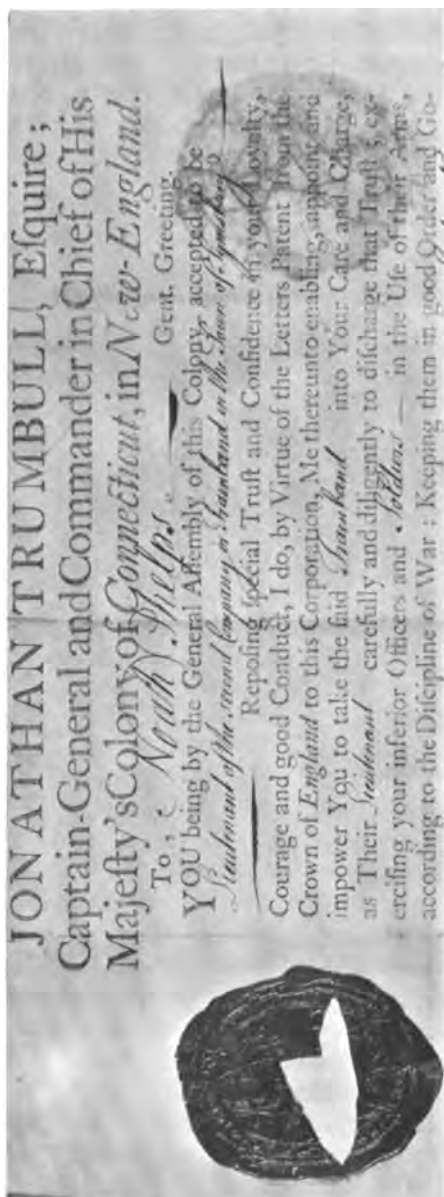 JONATHAN TRUMBULL, Eſquire;
Captain-General and Commander in Chief of His
Majeſty's Colony of Connecticut, in New-England.
To, Noah Phelps Gent. Greeting.
YOU being by the General Aſſembly of this Colony accepted to be
Lieutenant of the second Company or Trainband in the Town of Symsbury
Repoſing ſpecial Truſt and Confidence in your Loyalty,
Courage and good Conduct, I do, by Virtue of the Letters Patent from the
Crown of England to this Corporation, Me thereunto enabling, appoint and
impower You to take the ſaid Trainband into Your Care and Charge,
as Their Lieutenant carefully and diligently to diſcharge that Truſt; ex-
erciſing your inferior Officers and Soldiers in the Uſe of their Arms,
according to the Diſcipline of War: Keeping them in good Order and Go-